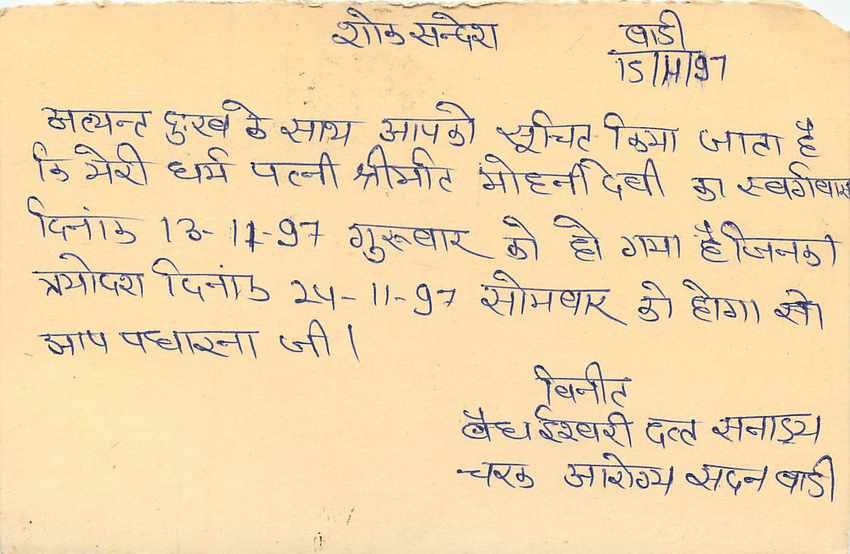 शोक सन्देश
बाडी
15/11/97
अत्यन्त दुःख के साथ आपको सूचित किया जाता है
कि मेरी धर्म पत्नी श्रीमति मोहनी देवी का स्वर्गवास
दिनांक 13-11-97 गुरूवार को हो गया है जिनका
त्रयोदश दिनांक 24-11-97 सोमवार को होगा सो
आप पधारना जी।
विनीत
वैध ईश्वरी दत्त सनाड्य
चरक आरोग्य सदन बाडी